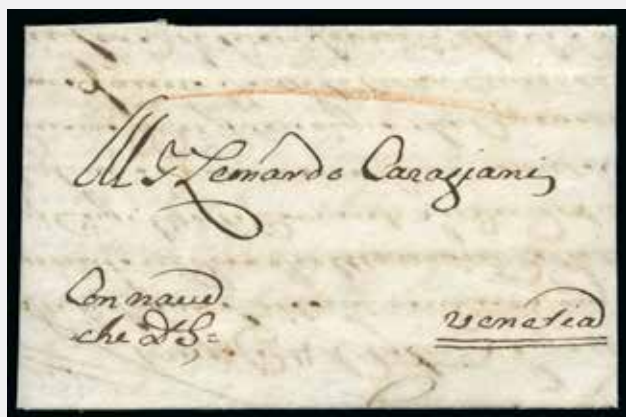 Ill. Sr. Leonardo Caragiani
Con nave
che D. S.
venetia